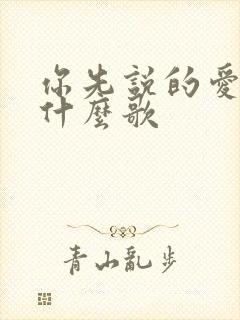 你先說的愛
什麼歌
青山亂步